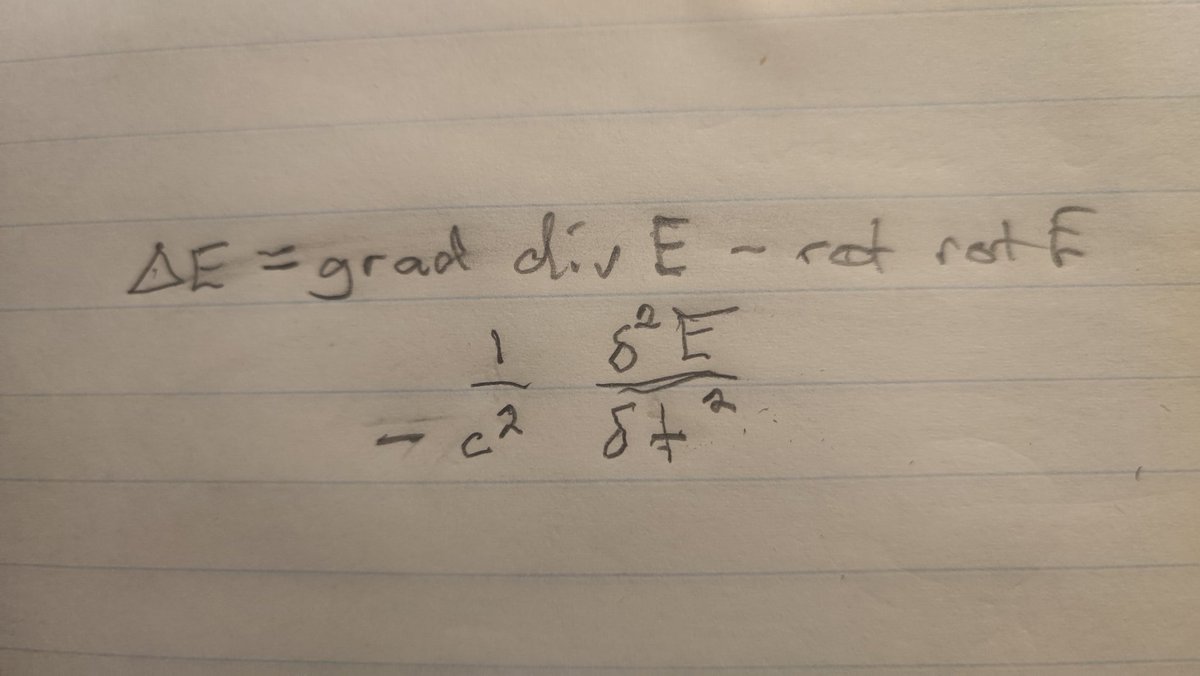 ΔE = grad div E - rot rot E
- 1/c² δ²E/δt²